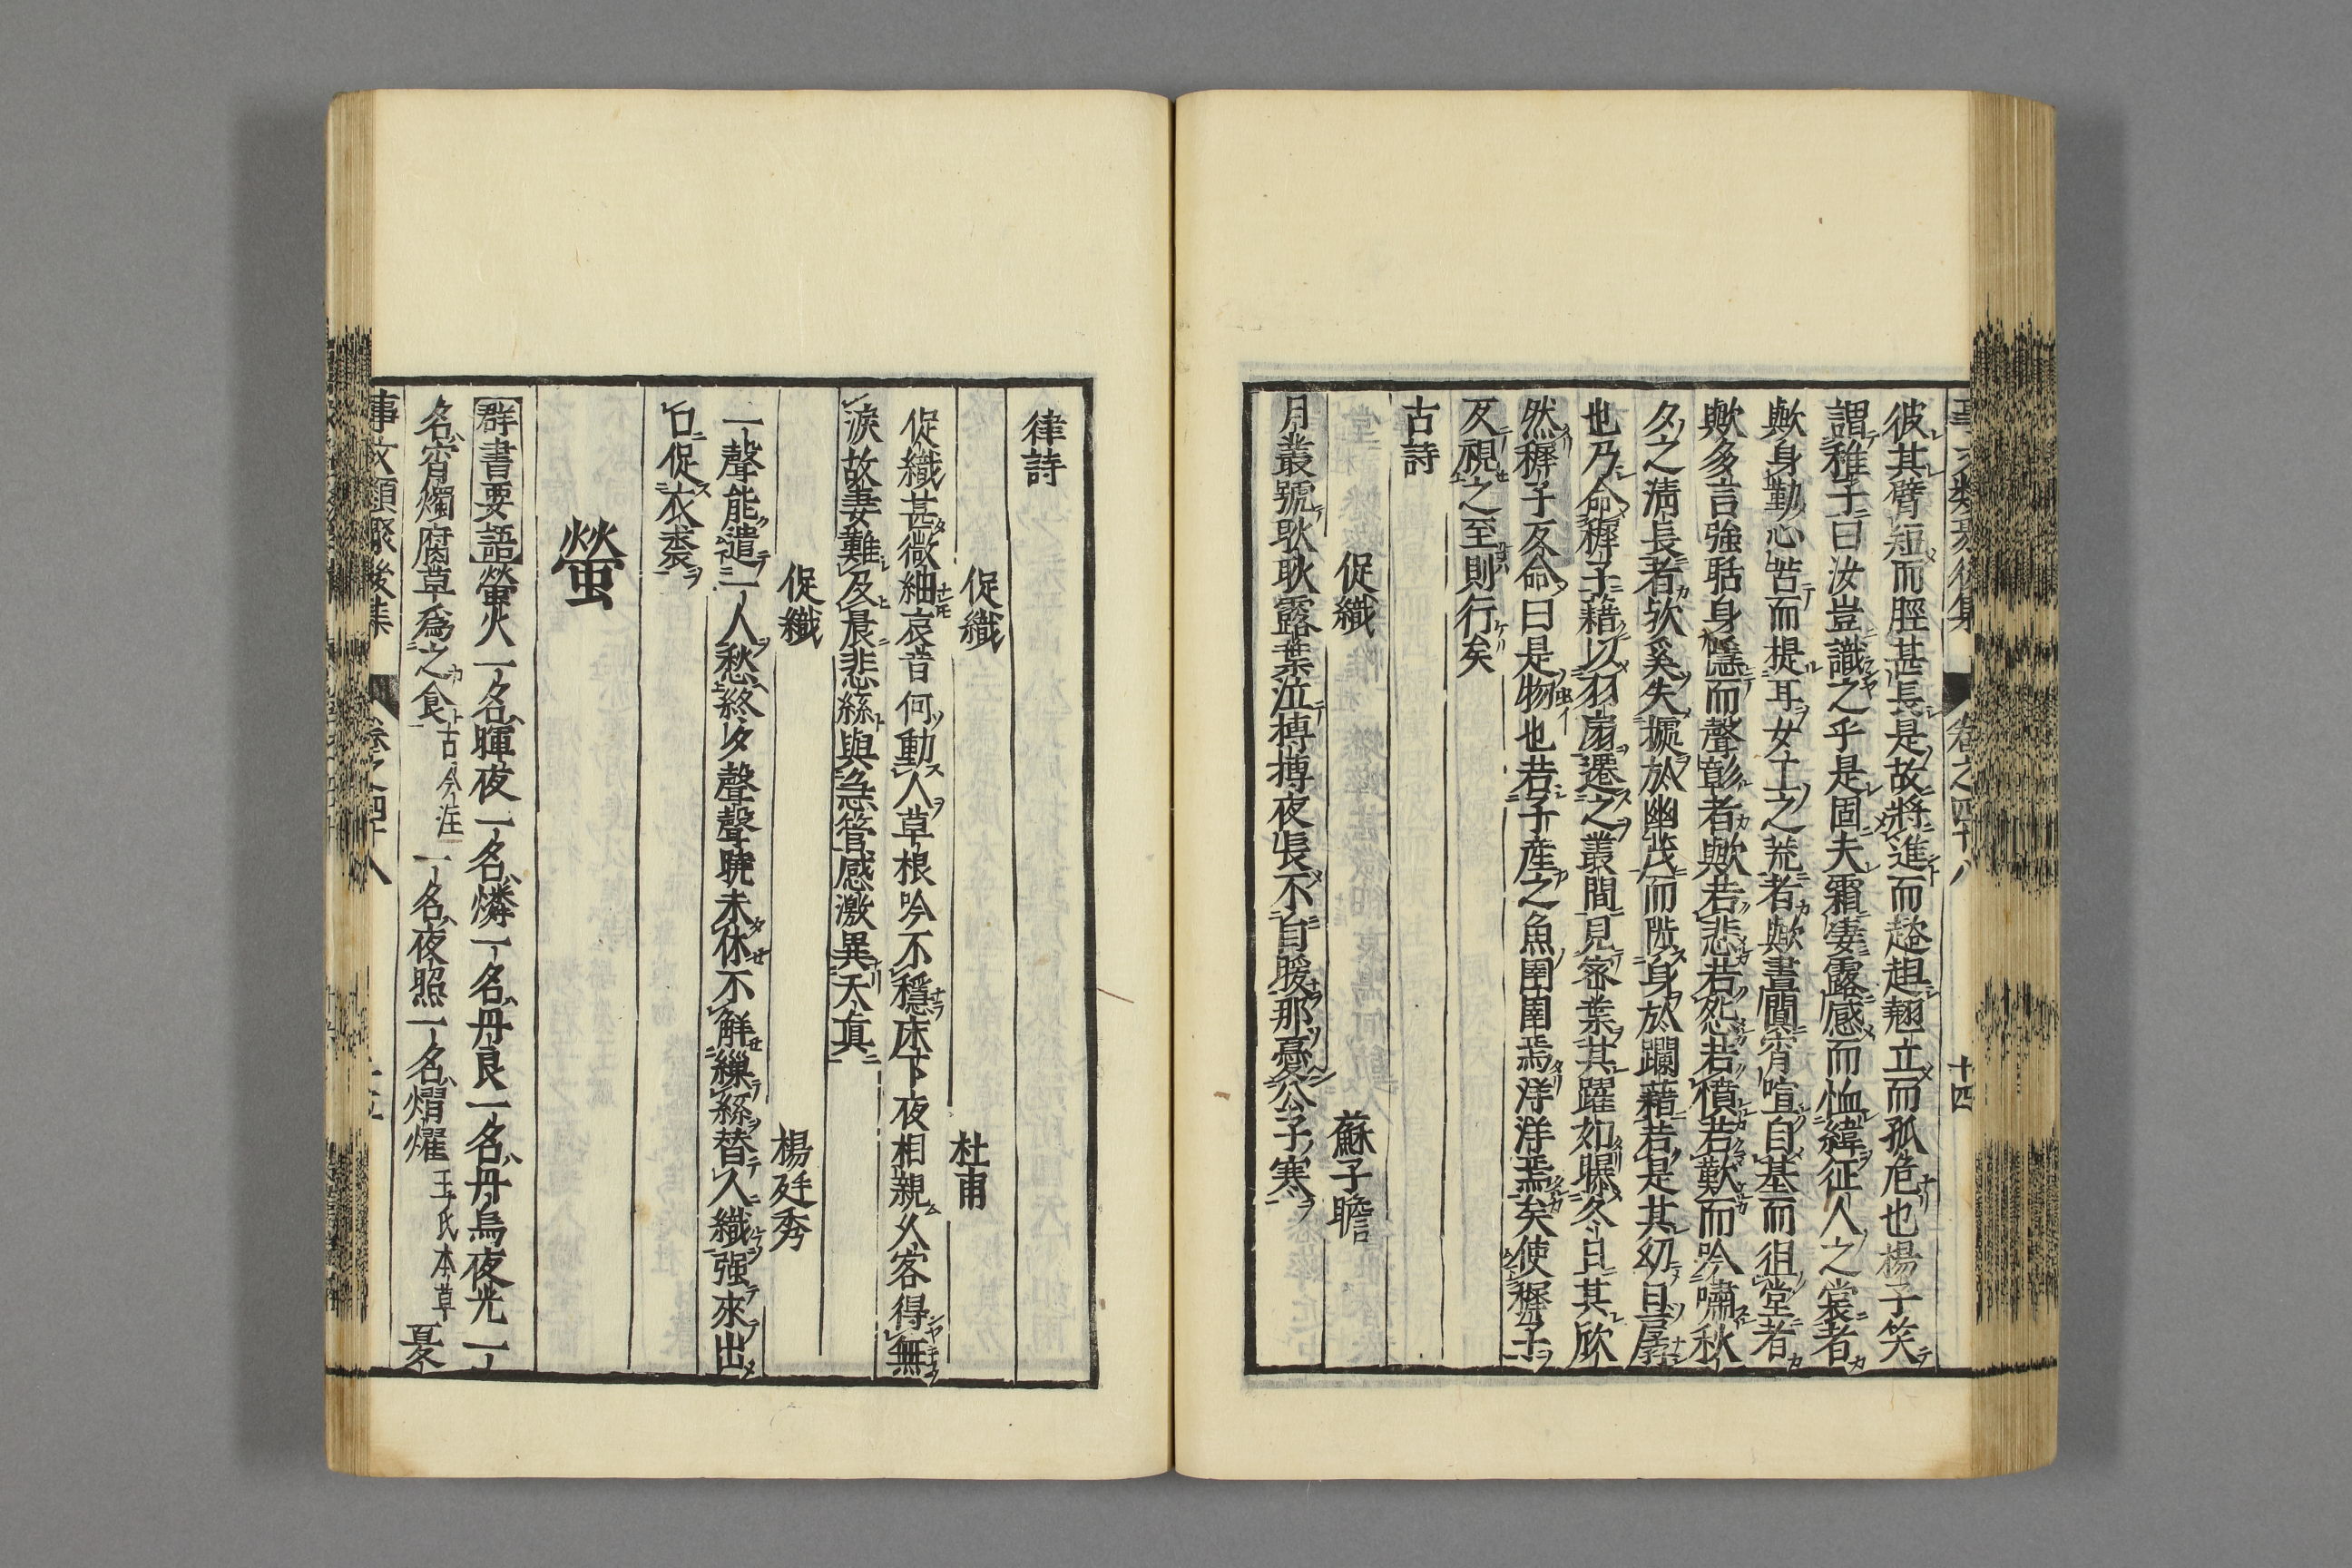 彼其臂短而脛甚長是故將進而趦趄翹立而孤危也楊子笑
謂稚子曰汝豈識之乎是固夫霜凄露感而恤緯征人之裳者
歟身勤心苦而提耳女士之荒者歟晝閴宵喧自基而徂堂者
歟多言強聒身隱而聲彰者歟若悲若怨若憤若歎而吟嘯秋
夕之淸長者歟奚失據於幽茂而陊身於躝藉若是其幼且孱
也乃命穉子藉以羽扇遷之叢間見容葉其躍如曝冬日其欣
然穉子反命曰是物也若子產之魚圉圉焉洋洋焉矣使穉子
反視之至則行矣
古詩
促織 蘇子瞻
月叢號耿耿露葉泣摶摶夜長不自暖那憂公子寒
律詩
促織 杜甫
促織甚微細哀音何動人草根吟不穩床下夜相親久客得無
淚故妻難及晨悲絲與急管感激異天真
促織 楊廷秀
一聲能遣一人愁終夕聲聲曉未休不解繅絲替人織强來出
口促衣裘
螢
群書要語 螢火一名暉夜一名燐一名丹良一名丹鳥夜光一
名宵燭腐草爲之食古今注一名夜照一名熠燿王氏本草夏
事文類聚後集 卷之四十八